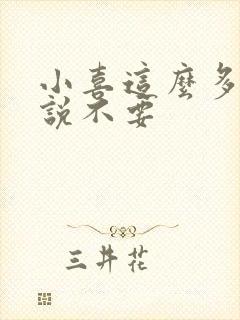 小喜這麼多
說不要
三井花